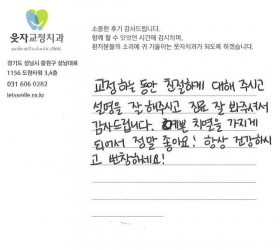 웃자교정치과
소중한 후기 감사드립니다.
함께 할 수 있었던 시간에 감사하며,
환자분들의 소리에 귀 기울이는 웃자치과가 되도록 하겠습니다.
경기도 성남시 중원구 성남대로
1156 도향타워 3,4층
031 606 0282
letssmile.co.kr
교정 하는 동안 친절하게 대해 주시고
설명을 잘 해주시고 진료 잘 봐주셔서
감사드립니다. 예쁜 치열을 가지게
되어서 정말 좋아요! 항상 건강하시
고 번창하세요!